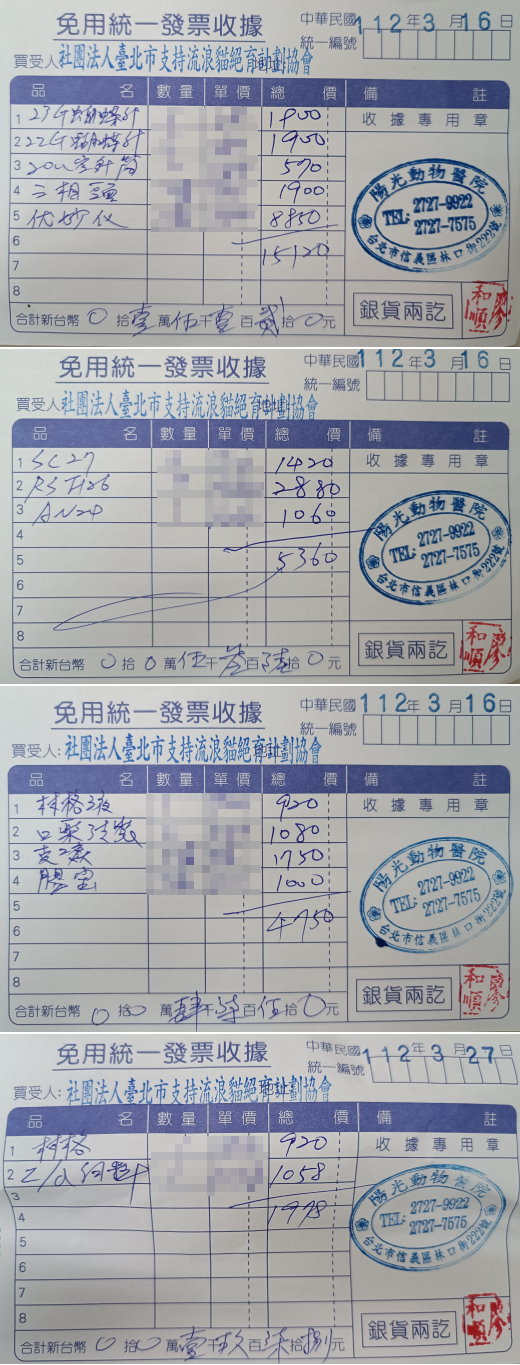 免用統一發票收據
中華民國 112年3月16日
統一編號
買受人 社團法人臺北市支持流浪貓絕育計劃協會
品 名 數量 單價 總 價 備 註
收據專用章
1 27G蝴蝶針 1900
2 22G蝴蝶針 1900
3 20cc空針筒 570
4 三相 1900
5 优妙仪 8850
6 15120
7
8
陽光動物醫院
TEL: 2727-9922
2727-7575
台北市信義區林口街222號
銀貨兩訖
合計新台幣 0 拾 壹 萬 伍 千 壹 百 貳 拾 0 元
免用統一發票收據
中華民國 112年3月16日
統一編號
買受人 社團法人臺北市支持流浪貓絕育計劃協會
品 名 數量 單價 總 價 備 註
收據專用章
1 SC27 1420
2 2880
3 AN24 1060
4
5 5360
6
7
8
陽光動物醫院
TEL: 2727-9922
2727-7575
台北市信義區林口街222號
銀貨兩訖
合計新台幣 0 拾 0 萬 伍 千 參 百 陸 拾 0 元
免用統一發票收據
中華民國 112年3月16日
統一編號
買受人: 社團法人臺北市支持流浪貓絕育計劃協會
品 名 數量 單價 總 價 備 註
收據專用章
1 林格液 920
2 1080
3 1750
4 腸宝 1000
5
6 4750
7
8
陽光動物醫院
TEL: 2727-9922
2727-7575
台北市信義區林口街222號
銀貨兩訖
合計新台幣 0 拾 0 萬 肆 千 柒 百 伍 拾 0 元
免用統一發票收據
中華民國 112年3月27日
統一編號
買受人: 社團法人臺北市支持流浪貓絕育計劃協會
品 名 數量 單價 總 價 備 註
收據專用章
1 林格 920
2 1058
3
4 1978
5
6
7
8
陽光動物醫院
TEL: 2727-9922
2727-7575
台北市信義區林口街222號
銀貨兩訖
合計新台幣 0 拾 0 萬 壹 千 玖 百 柒 拾 捌 元